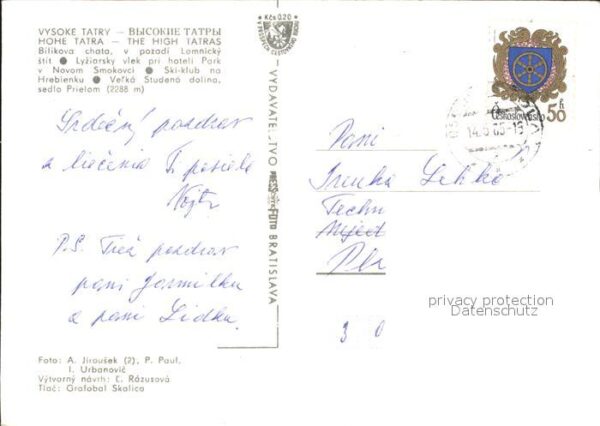 Kčs 0,20
VYSOKÉ TATRY — ВЫСОКИЕ ТАТРЫ
HOHE TATRA — THE HIGH TATRAS
Bilíkova chata, v pozadí Lomnický
štít ● Lyžiarsky vlek pri hoteli Park
v Novom Smokovci ● Ski-klub na
Hrebienku ● Veľká Studená dolina,
sedlo Prielom (2288 m)
Srdečný pozdrav
z liečenia Ti posiela
P.S. Tiež pozdrav
pani Jarmilku
a pani Lidku.
Foto: A. Jiroušek (2), P. Paul,
I. Urbanovič
Výtvarný návrh: Ľ. Rázusová
Tlač: Grafobal Skalica
VYDAVATEĽSTVO PRESSFOTO BRATISLAVA
Československo
50 h
Pani
Irenka
Techn
3 0
privacy protection
Datenschutz